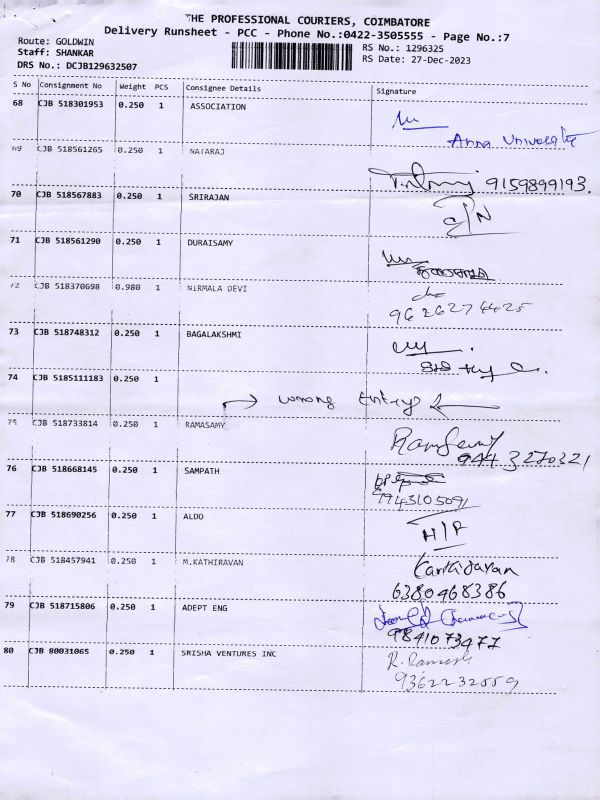 THE PROFESSIONAL COURIERS, COIMBATORE
Delivery Runsheet - PCC - Phone No.:0422-3505555 - Page No.:7
Route: GOLDWIN
Staff: SHANKAR
DRS No.: DCJB129632507
RS No.: 1296325
RS Date: 27-Dec-2023
S No Consignment No Weight PCS Consignee Details Signature
68 CJB 518301953 0.250 1 ASSOCIATION
Anna University
69 CJB 518561265 0.250 1 NATARAJ
9159899193.
70 CJB 518567883 0.250 1 SRIRAJAN
71 CJB 518561290 0.250 1 DURAISAMY
72 CJB 518370698 0.980 1 NIRMALA DEVI
9626274425
73 CJB 518748312 0.250 1 BAGALAKSHMI
74 CJB 5185111183 0.250 1
wrong Entry
75 CJB 518733814 0.250 1 RAMASAMY
944 3270321
76 CJB 518668145 0.250 1 SAMPATH
7943105091
77 CJB 518690256 0.250 1 ALDO
H/P
78 CJB 518457941 0.250 1 M.KATHIRAVAN
Kathiravan
6380468386
79 CJB 518715806 0.250 1 ADEPT ENG
9841073477
80 CJB 80031065 0.250 1 SRISHA VENTURES INC
R. Ramesh
9362232559